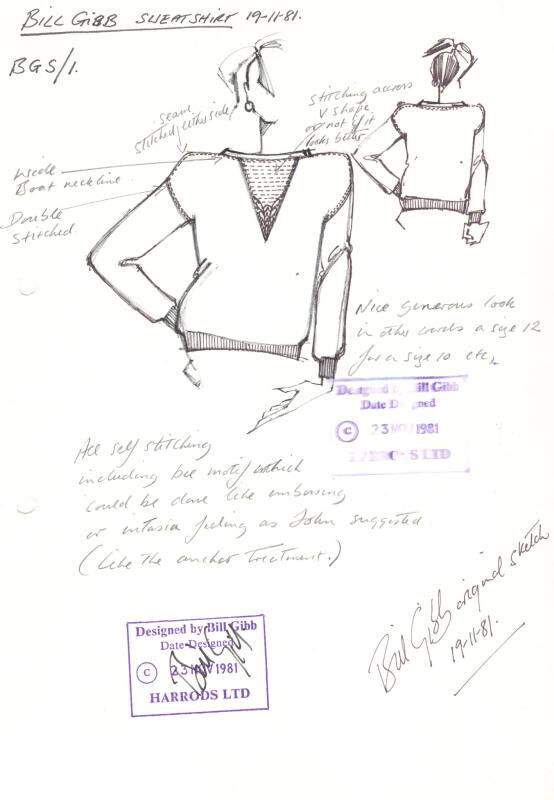 BILL GIBB SWEATSHIRT 19-11-81.
BGS/1.
seam
stitched either side
stitching accross
V shape
or not if it
looks better
Wide
Boat neckline
Double
Stitched.
Nice generous look
in other words a size 12
for a size 10 etc,
Designed by Bill Gibb
Date Designed
© 23 NOV 1981
HARRODS LTD
All self stitching
including bee motif which
could be done like imbosing
or intasia feeling as John suggested.
(like the anchor treatment.)
Designed by Bill Gibb
Date Designed
© 23 NOV 1981
HARRODS LTD
Bill Gibb
Bill Gibb original sketch
19-11-81.